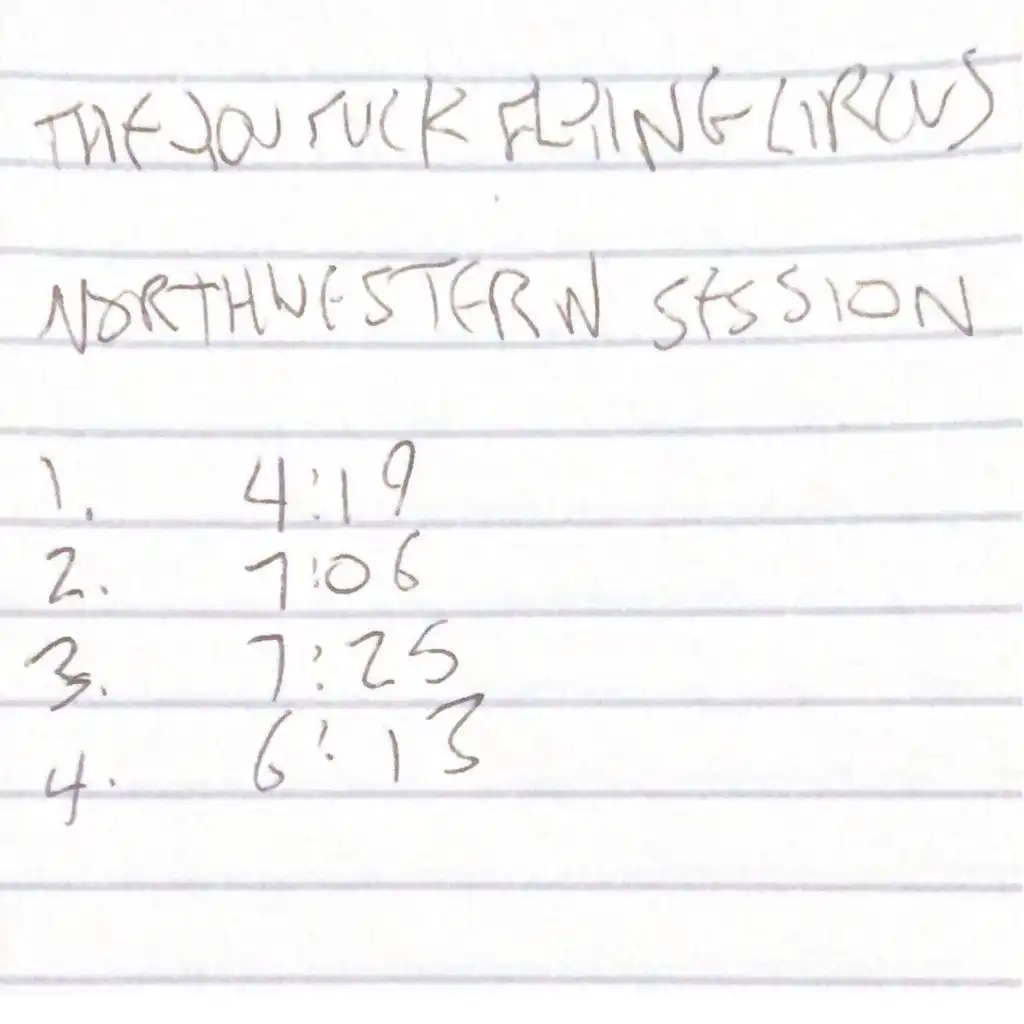 THE YOU FUCK FLYING CIRCUS
NORTHWESTERN SESSION
1. 4:19
2. 7:06
3. 7:25
4. 6:13